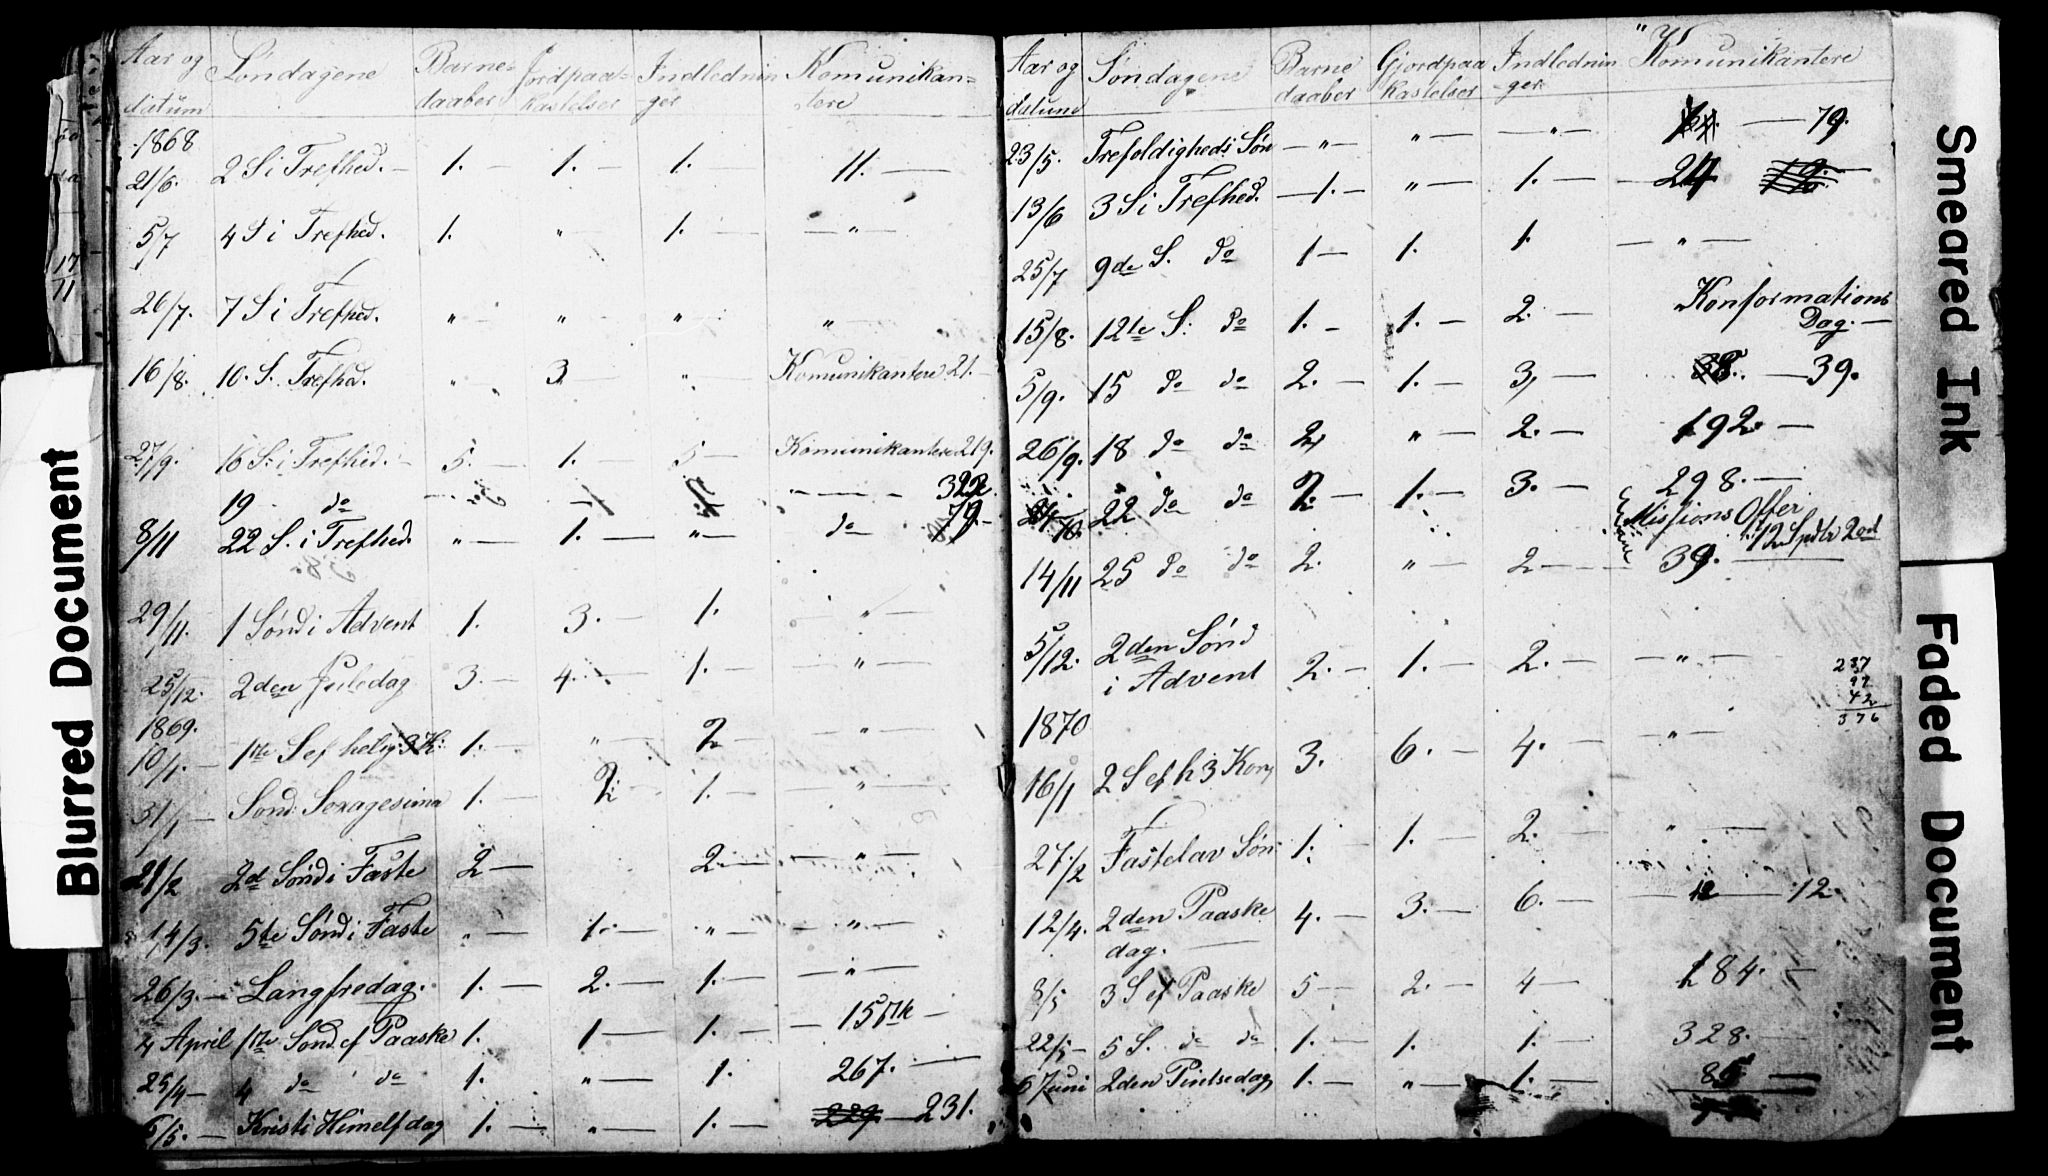 Aar og datum Søndagene Barne- daaber Jordpaa- kastelser Indlednin ger Komunikan- tere
1868
21/6. 2 S i Trefhed. – 1. – 1. – 1. – 11. –
5/7 4 S i Trefhed. 1. " 1. – – " –
26/7. 7 S i Trefhed. " – " – " – " –
16/8. 10. S. Trefhd. " – 3 – " – Komunikantere 21. –
27/9. 16 S. i Trefhed. – 5. – 1. – 5 – Komunikantere 219.
19 do 322
8/11 22 S. i Trefhed. " – 1. – " – do 79. –
29/11. 1 Sønd i Advent 1. 3. – 1. – " –
25/12. 2den Juledag 3. – 4. – 1. – – " –
1869.
10/1. – 1ste S ef helig 3 K: 1. – " – 2 – – " –
31/1 – Sond: Sexagesima 1. – 2. – 1. – – " –
21/2 2d Sønd i Faste 2 – 2. – – " –
14/3. 5te Sønd i Faste " – 1. – " – – " –
26/3. – Langfredag. 1. – 2. – 1. – – " –
4 April 1ste Sond. ef Paaske 1. 1 – 1. – – 157 –
25/4 – 4 do do 1. " – 1. 267. –
6/5. – Kristi Himelf dag 1. – " – 1. – 229 – 231.
Aar og datum Søndagene Barne daaber Gjordpaa kastelser Indlednin -ger " Komunikantere
23/5. Trefoldigheds Søn – " – " – – " – – 79.
13/6 3 S i Trefhed. – 1. – " – 1. – – 24
25/7 9de S. do 1 – 1. 1. – " –
15/8. 12te S: do 1. – 1. – 2. – Konformations Dag. –
5/9. 15 do do 2. – 1. – 3, – 38. – 39.
26/9. 18 do do 2. " – 2. – 192. –
24/10. 22 do do 2. – 1. – 3. – 298. –
Missions Offer 12 Spdlr 20d
14/11 25 do do 2. " – 2 – – 39. –
5/12. 2den Sønd i Advent 2. – 1. – 2. – – " –
237
97
42
376
1870
16/1 2 S ef h 3 Kon, 3. 6. – 4. – – " –
27/2 Fastelav Søn 1. 1. – 2. – " –
12/4. 2den Paaske dag. – 4. – 3. – 6. – – 12 – 12.
8/5 3 S ef Paaske 5 – 2. – 4 – 184. –
22/5 – 5 S. do do 1. – 1. 1. – 328. –
6 Juni 2den Pintsedag 1. – " – 1. – 85. –
Blurred Document
Smeared Ink
Faded Document
17
11